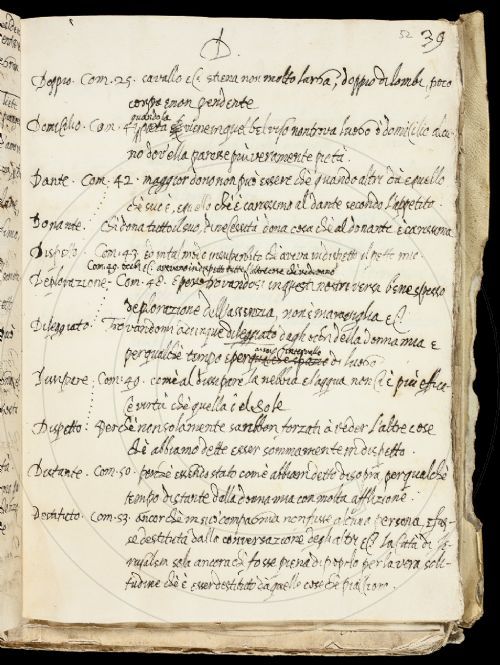 52 39
D
Doppio. Com. 25. cavallo di schena non molto larga, doppio di lombi, poco
corpo e non pendente
quando la
Domicilio. Com. 41. pietà viene in quel bel viso non trova luogo o domicilio alcu-
no dov'ella parere più veramente pietà.
Dante. Com. 42. maggior dono non può essere ché quando altri dà quello
che suo è, e quello ch'è carissimo al dante secondo l'appetito.
Donante. Chi dona tutto il suo di necessità dona cosa ch'al donante è carissima
Dispetto. Com. 43. che aveva in dispetto il petto mio.
Com. 49. occhi avevano in dispetto tutte l'altre cose che vedevano
Deplorazione. Com. 48. E però trovandosi in questi nostri versi bene spesso
deplorazione dell'assenzia, non si maraviglia
Dileguato. Trovandomi adunque dileguato dagli occhi della donna mia e
assai intervallo
per qualche tempo e per di luogo
Disrumpere. Com. 49. come al disrumpere la nebbia e l'acqua non è più effica-
ce virtù che quella del Sole
Dispetto. Perché non solamente sarebbon forzati a veder l'altre cose
che abbiamo dette esser sommamente in dispetto.
Distante. Com. 50. essendo stato com'è abbiam detto di sopra per qualche
tempo distante dalla donna mia con molta afflizione.
Destituto. Com. 53. ancorché in sua compagnia non fusse alcuna persona, e fus-
se destituta dalla conversazione degli altri La Città di Je-
rusalem sola ancora ch'fosse piena di popolo per la vera soli-
tudine che è esser destituto da quelle cose che piacciono.